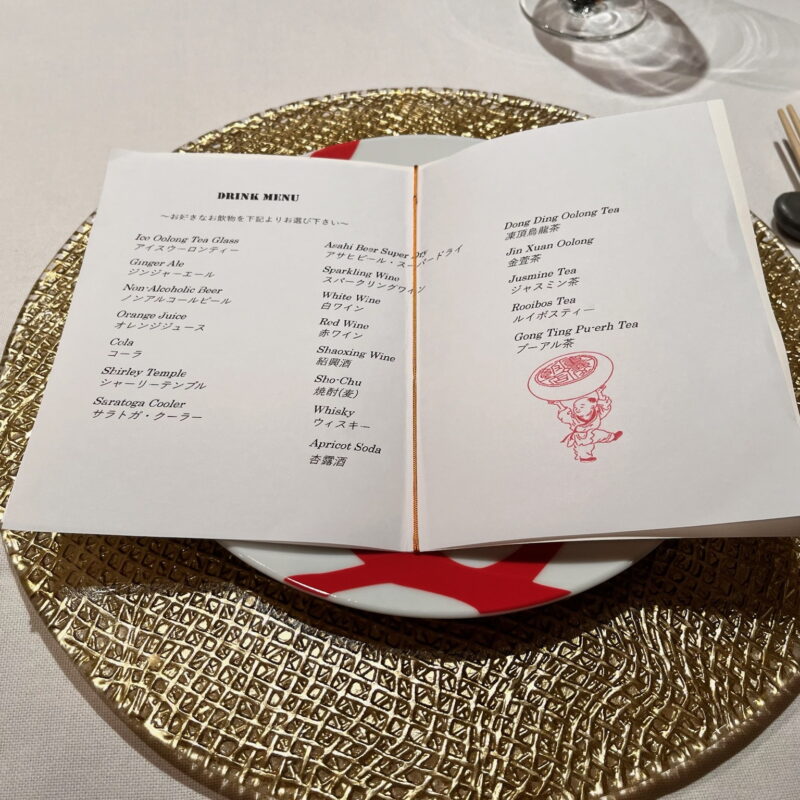 DRINK MENU
～お好きなお飲物を下記よりお選び下さい～
Ice Oolong Tea Glass
アイスウーロンティー
Ginger Ale
ジンジャーエール
Non-Alcoholic Beer
ノンアルコールビール
Orange Juice
オレンジジュース
Cola
コーラ
Shirley Temple
シャーリーテンプル
Saratoga Cooler
サラトガ・クーラー
Asahi Beer Super Dry
アサヒビール・スーパードライ
Sparkling Wine
スパークリングワイン
White Wine
白ワイン
Red Wine
赤ワイン
Shaoxing Wine
紹興酒
Sho-Chu
焼酎(麦)
Whisky
ウィスキー
Apricot Soda
杏露酒
Dong Ding Oolong Tea
凍頂烏龍茶
Jin Xuan Oolong
金萱茶
Jusmine Tea
ジャスミン茶
Rooibos Tea
ルイボスティー
Gong Ting Pu-erh Tea
プーアル茶